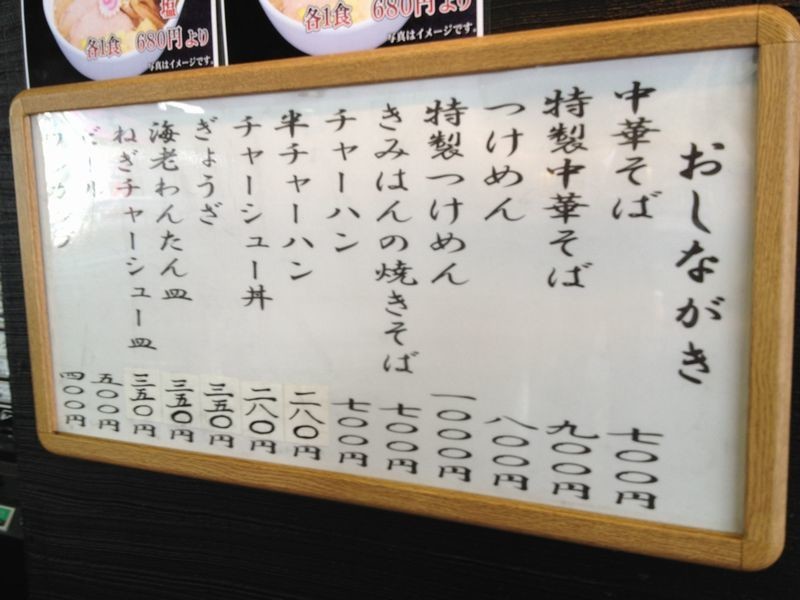 塩
各1食 680円より
写真はイメージです。
各1食 680円より
写真はイメージです。
おしながき
中華そば 七〇〇円
特製中華そば 九〇〇円
つけめん 八〇〇円
特製つけめん 一〇〇〇円
きみはんの焼きそば 七〇〇円
チャーハン 七〇〇円
半チャーハン 二八〇円
チャーシュー丼 二八〇円
ぎょうざ 三五〇円
海老わんたん皿 三五〇円
ねぎチャーシュー皿 三五〇円
ビール 五〇〇円
四〇〇円